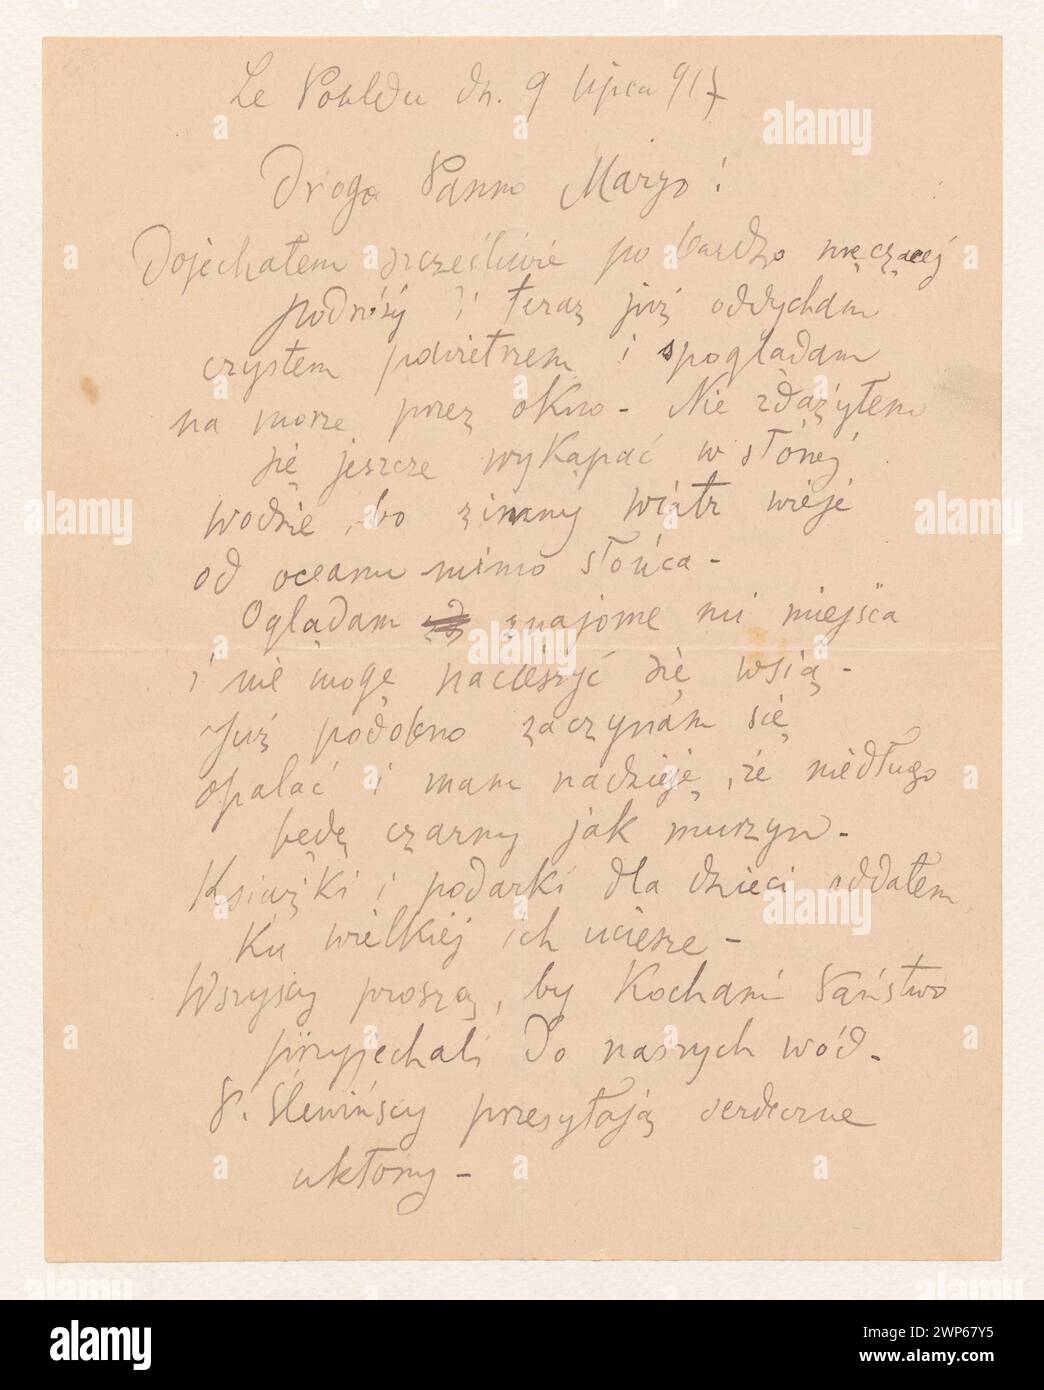 Le Pouldu dn. 9 lipca 917
Droga Panno Maryo!
Dojechałem szczęśliwie po bardzo męczącej
podróży i teraz już oddycham
czystem powietrzem i spoglądam
na morze przez okno - Nie zdążyłem
się jeszcze wykąpać w słonéj
wodzie, bo zimny wiatr wieje
od oceanu mimo słońca -
Oglądam znajome mi miejsca
i nie mogę nacieszyć się wsią -
Już podobno zaczynam się
opalać i mam nadzieję, że niedługo
będę czarny jak murzyn -
Książki i podarki dla dzieci oddałem
ku wielkiej ich uciesze -
Wszyscy proszą, by Kochani Państwo
przyjechali do naszych wód -
P. Ślewińscy przesyłają serdeczne
ukłony -
alamy
alamy
alamy
alamy
alamy
alamy
Image ID: 2WP67Y5
www.alamy.com